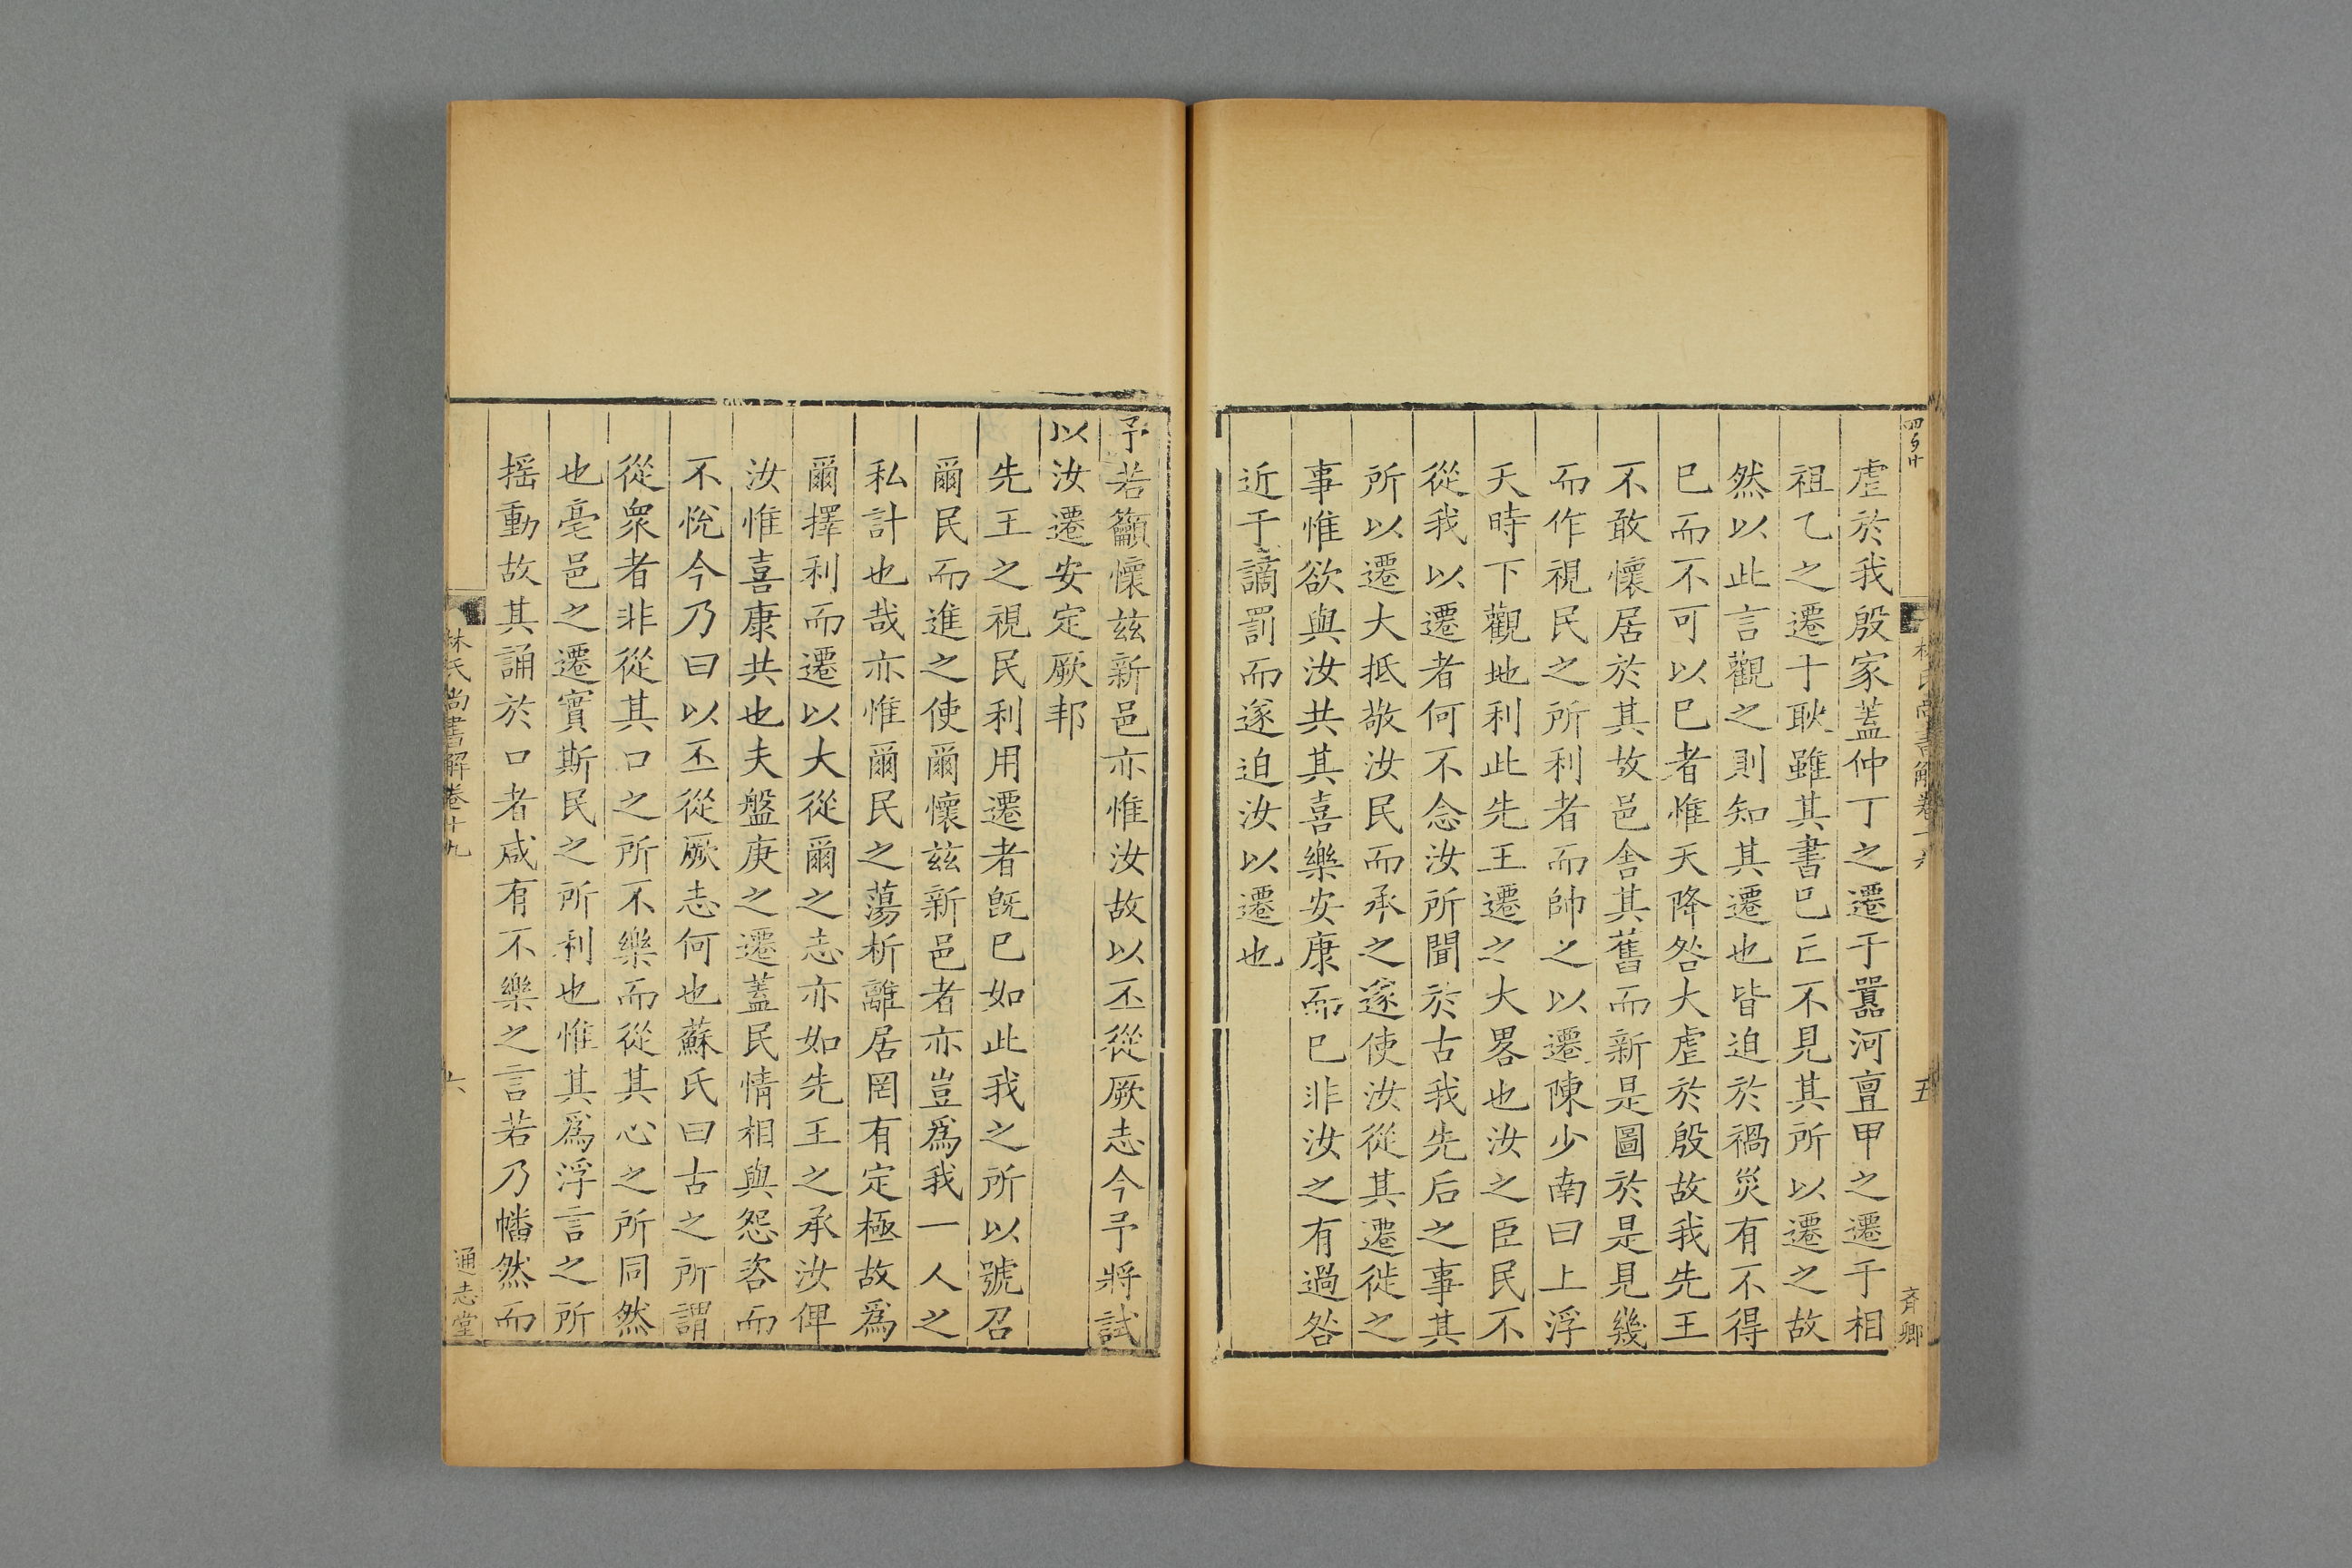 虐於我殷家蓋仲丁之遷于囂河亶甲之遷于相
祖乙之遷于耿雖其書已亡不見其所以遷之故
然以此言觀之則知其遷也皆迫於禍災有不得
已而不可以已者惟天降咎大虐於殷故我先王
不敢懷居於其故邑舍其舊而新是圖於是見幾
而作視民之所利者而帥之以遷陳少南曰上浮
天時下觀地利此先王遷之大畧也汝之臣民不
從我以遷者何不念汝所聞於古我先后之事其
所以遷大抵敬汝民而承之遂使汝從其遷徙之
事惟欲與汝共其喜樂安康而已非汝之有過咎
近于謫罰而遂迫汝以遷也
五
齊卿
予若籲懷茲新邑亦惟汝故以丕從厥志今予將試
以汝遷安定厥邦
先王之視民利用遷者旣已如此我之所以號召
爾民而進之使爾懷茲新邑者亦豈爲我一人之
私計也哉亦惟爾民之蕩析離居罔有定極故爲
爾擇利而遷以大從爾之志亦如先王之承汝俾
汝惟喜康共也夫盤庚之遷蓋民情相與怨咨而
不悅今乃曰以丕從厥志何也蘇氏曰古之所謂
從衆者非從其口之所不樂而從其心之所同然
也亳邑之遷實斯民之所利也惟其爲浮言之所
搖動故其誦於口者咸有不樂之言若乃幡然而
林氏尚書解卷十九
六
通志堂